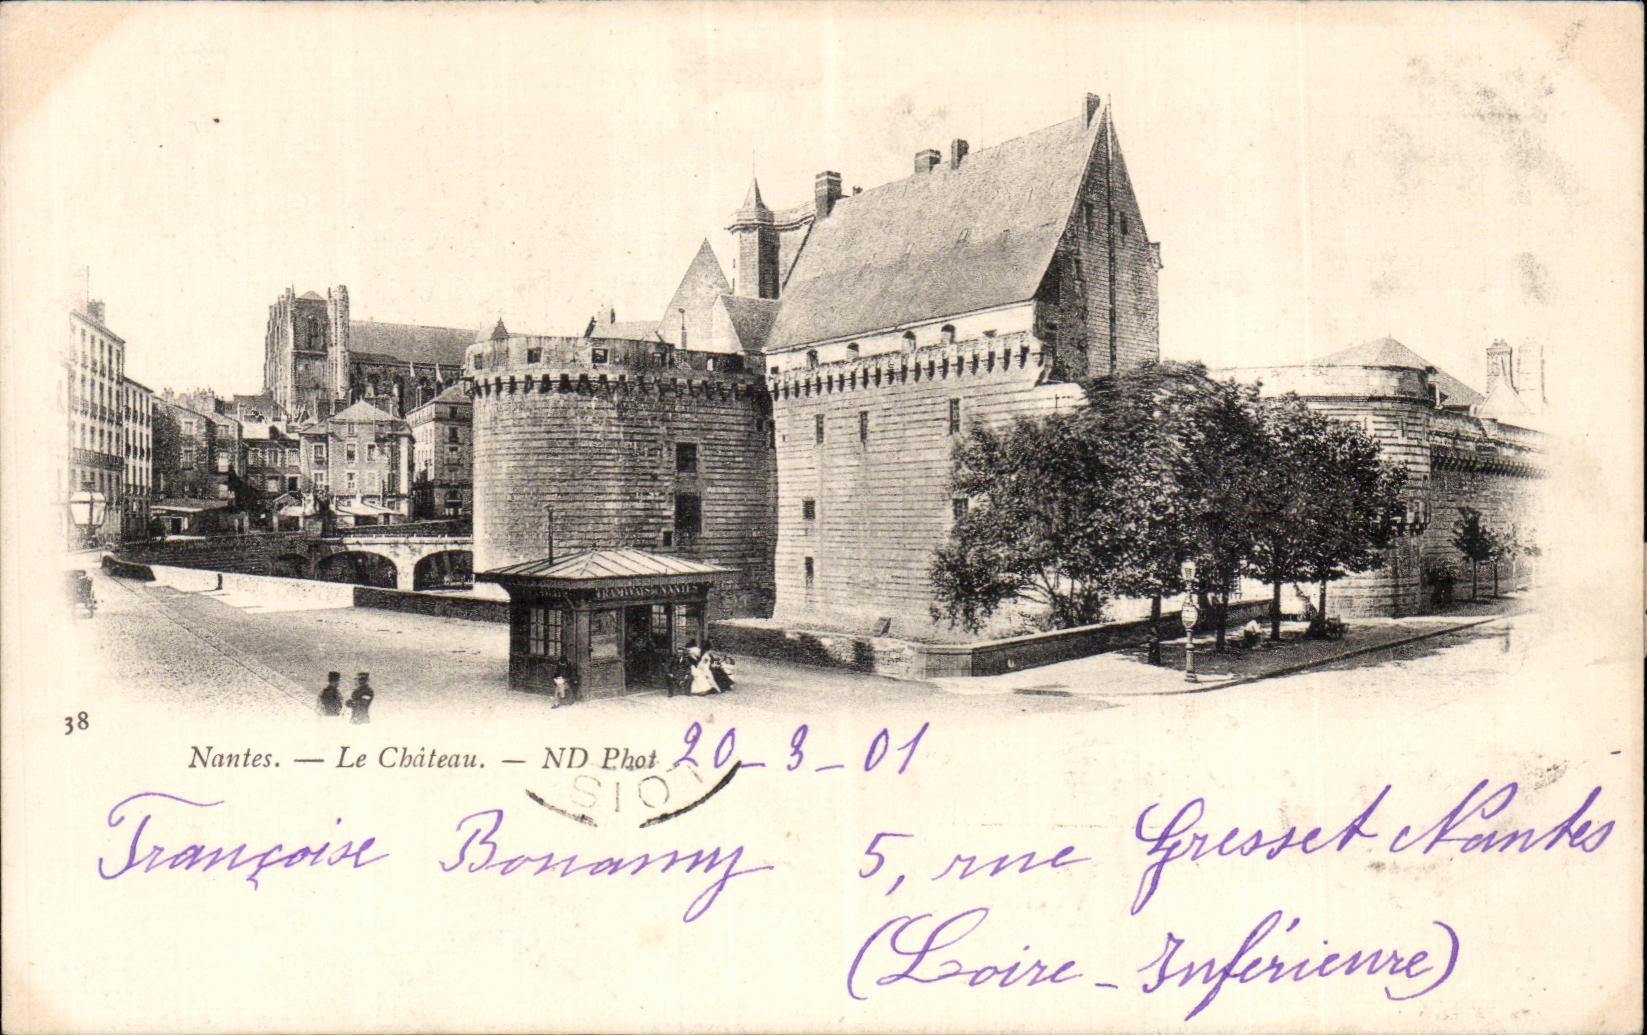 TRAMWAYS DE NANTES
38
Nantes. — Le Château. — ND Phot
20-3-01
OIS
Françoise Bonamy 5, rue Gresset Nantes
(Loire-Inférieure)